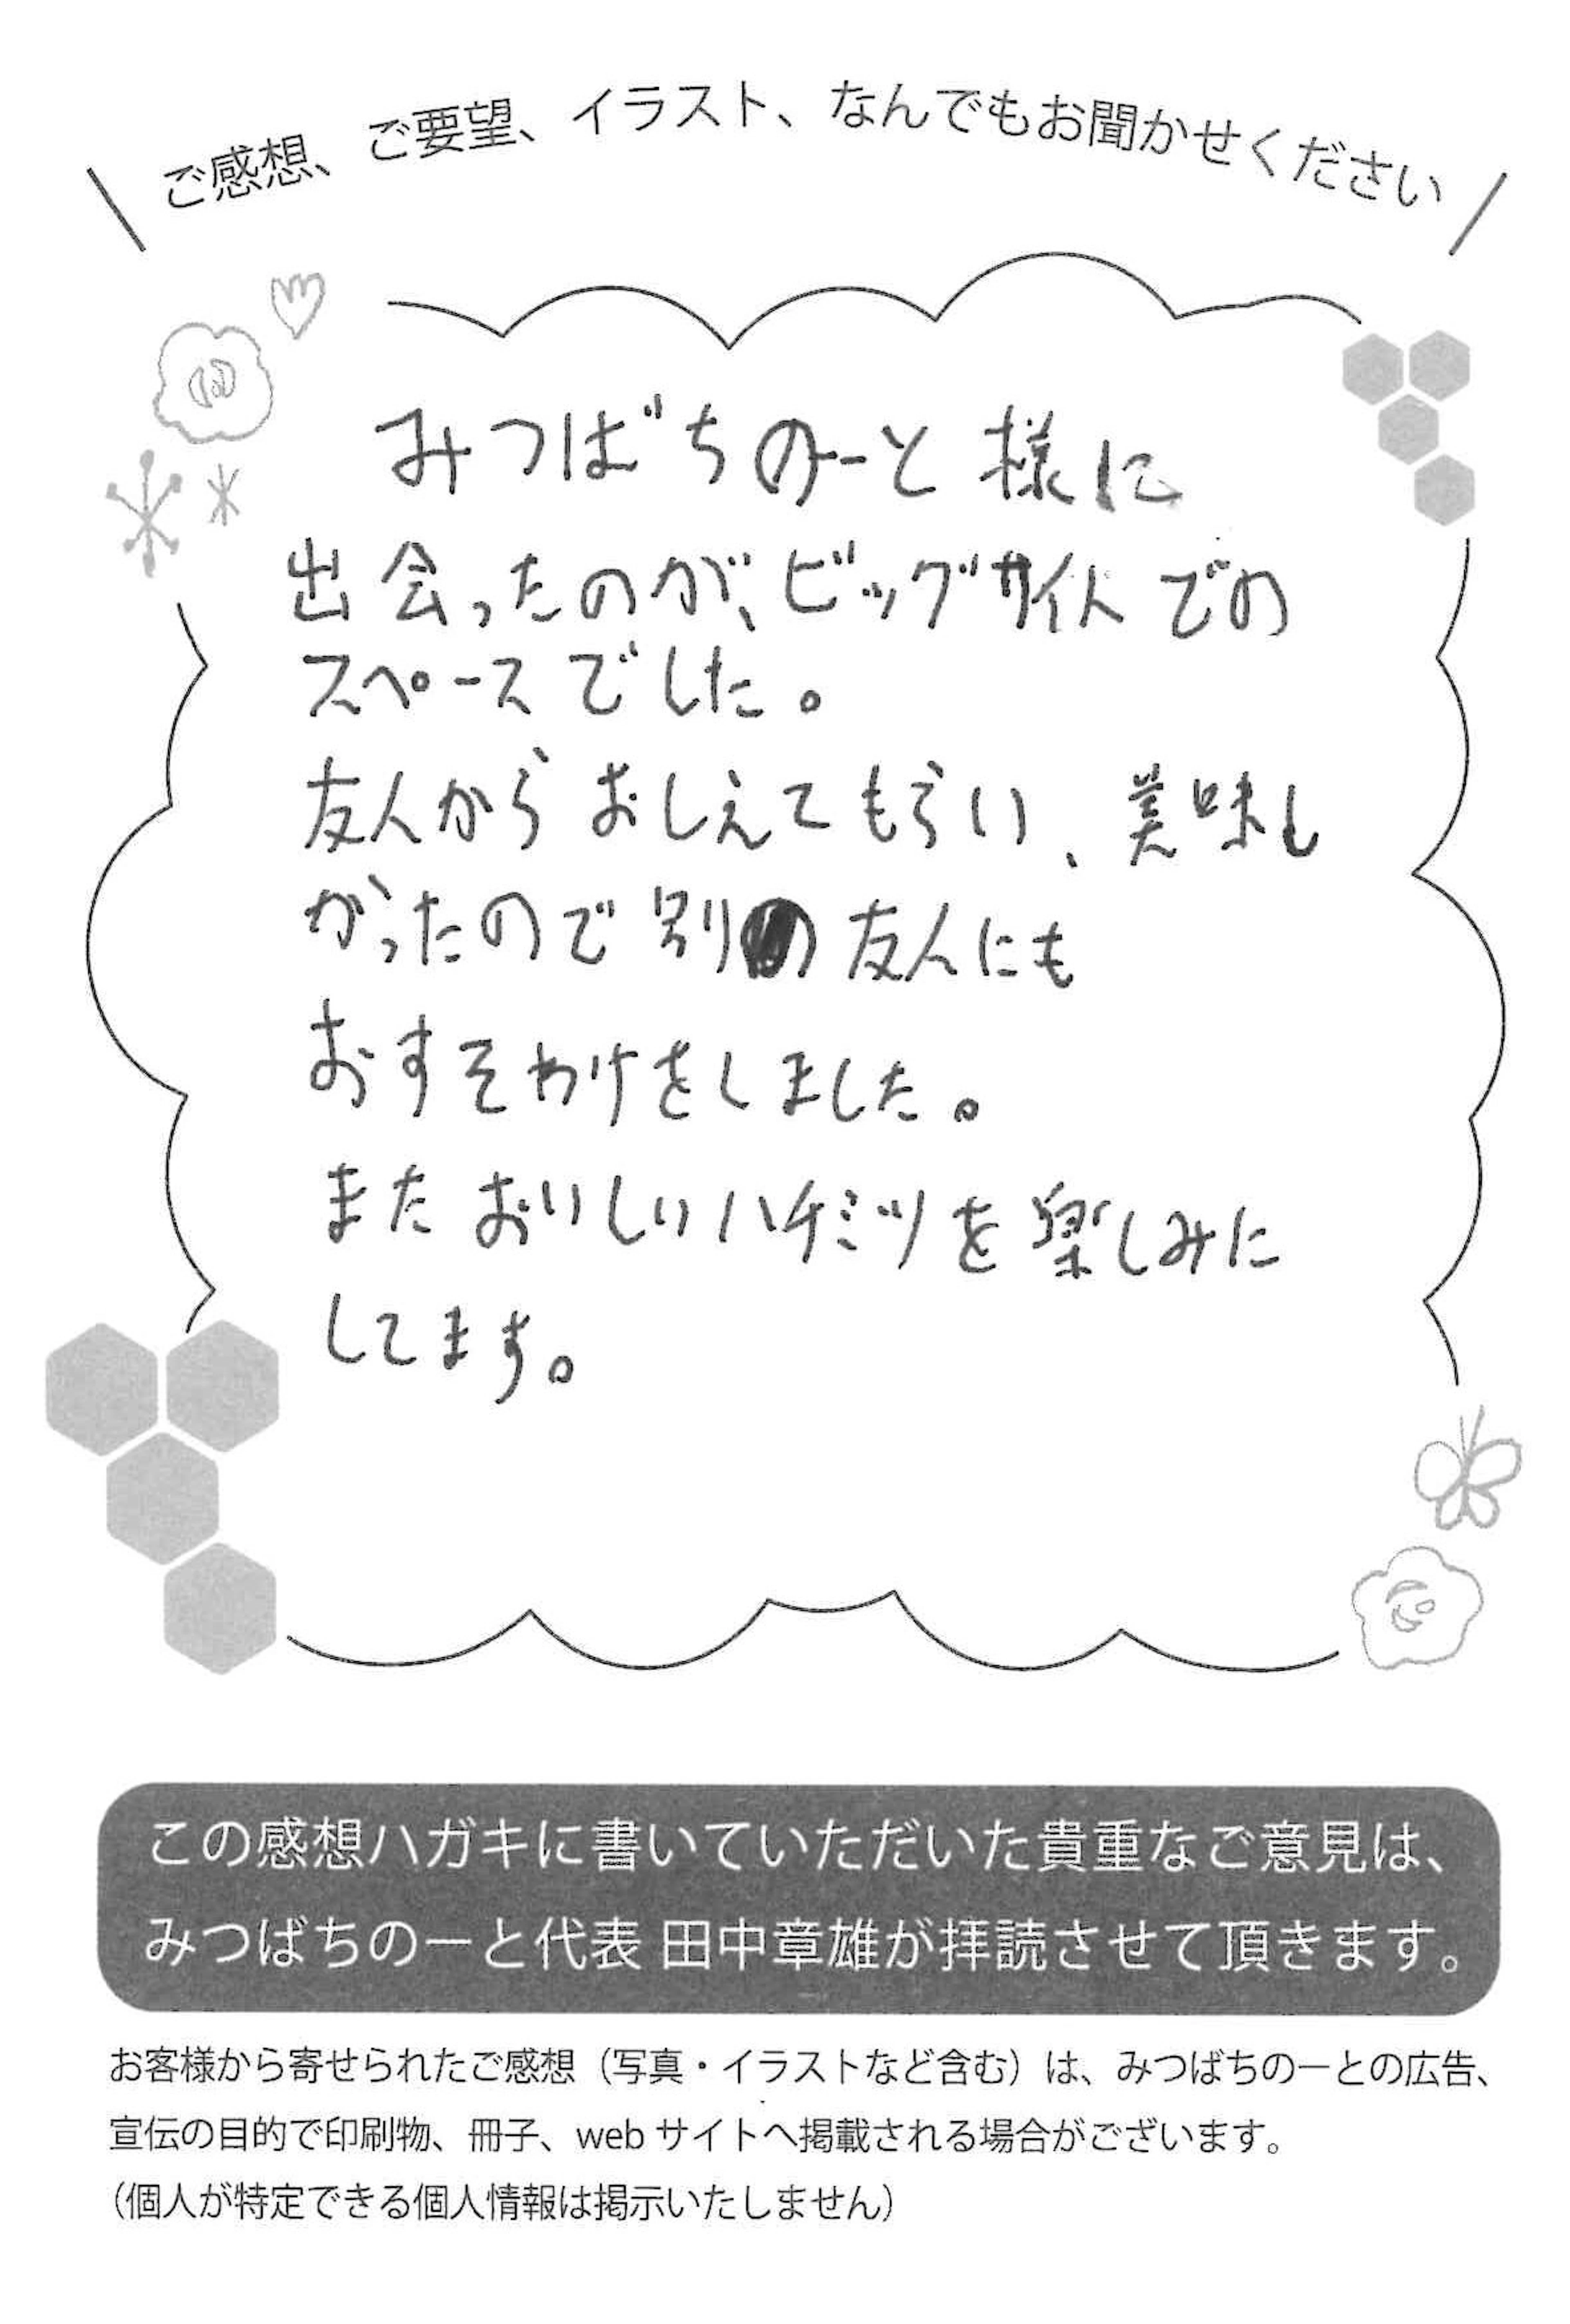 ご感想、ご要望、イラスト、なんでもお聞かせください
みつばちのーと様に
出会ったのが、ビッグサイトでの
スペースでした。
友人からおしえてもらい、美味し
かったので別の友人にも
おすそわけをしました。
またおいしいハチミツを楽しみに
してます。
この感想ハガキに書いていただいた貴重なご意見は、
みつばちのーと代表 田中章雄が拝読させて頂きます。
お客様から寄せられたご感想（写真・イラストなど含む）は、みつばちのーとの広告、
宣伝の目的で印刷物、冊子、web サイトへ掲載される場合がございます。
（個人が特定できる個人情報は掲示いたしません）